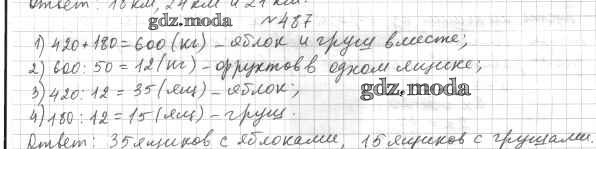 Ответ: 18 км, 24 км и 21 км.
gdz.moda
№487
1) 420+180=600(кг) – яблок и груш вместе;
2) 600:50=12(кг) – фруктов в одном ящике;
3) 420:12=35(ящ) – яблок;
gdz.moda
4) 180:12=15(ящ) – груш.
Ответ: 35 ящиков с яблоками, 15 ящиков с грушами.